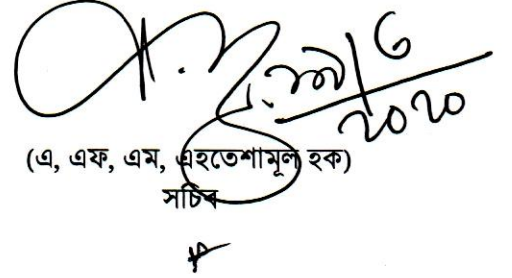 ২০২০
(এ, এফ, এম, এহতেশামূল হক)
সচিব